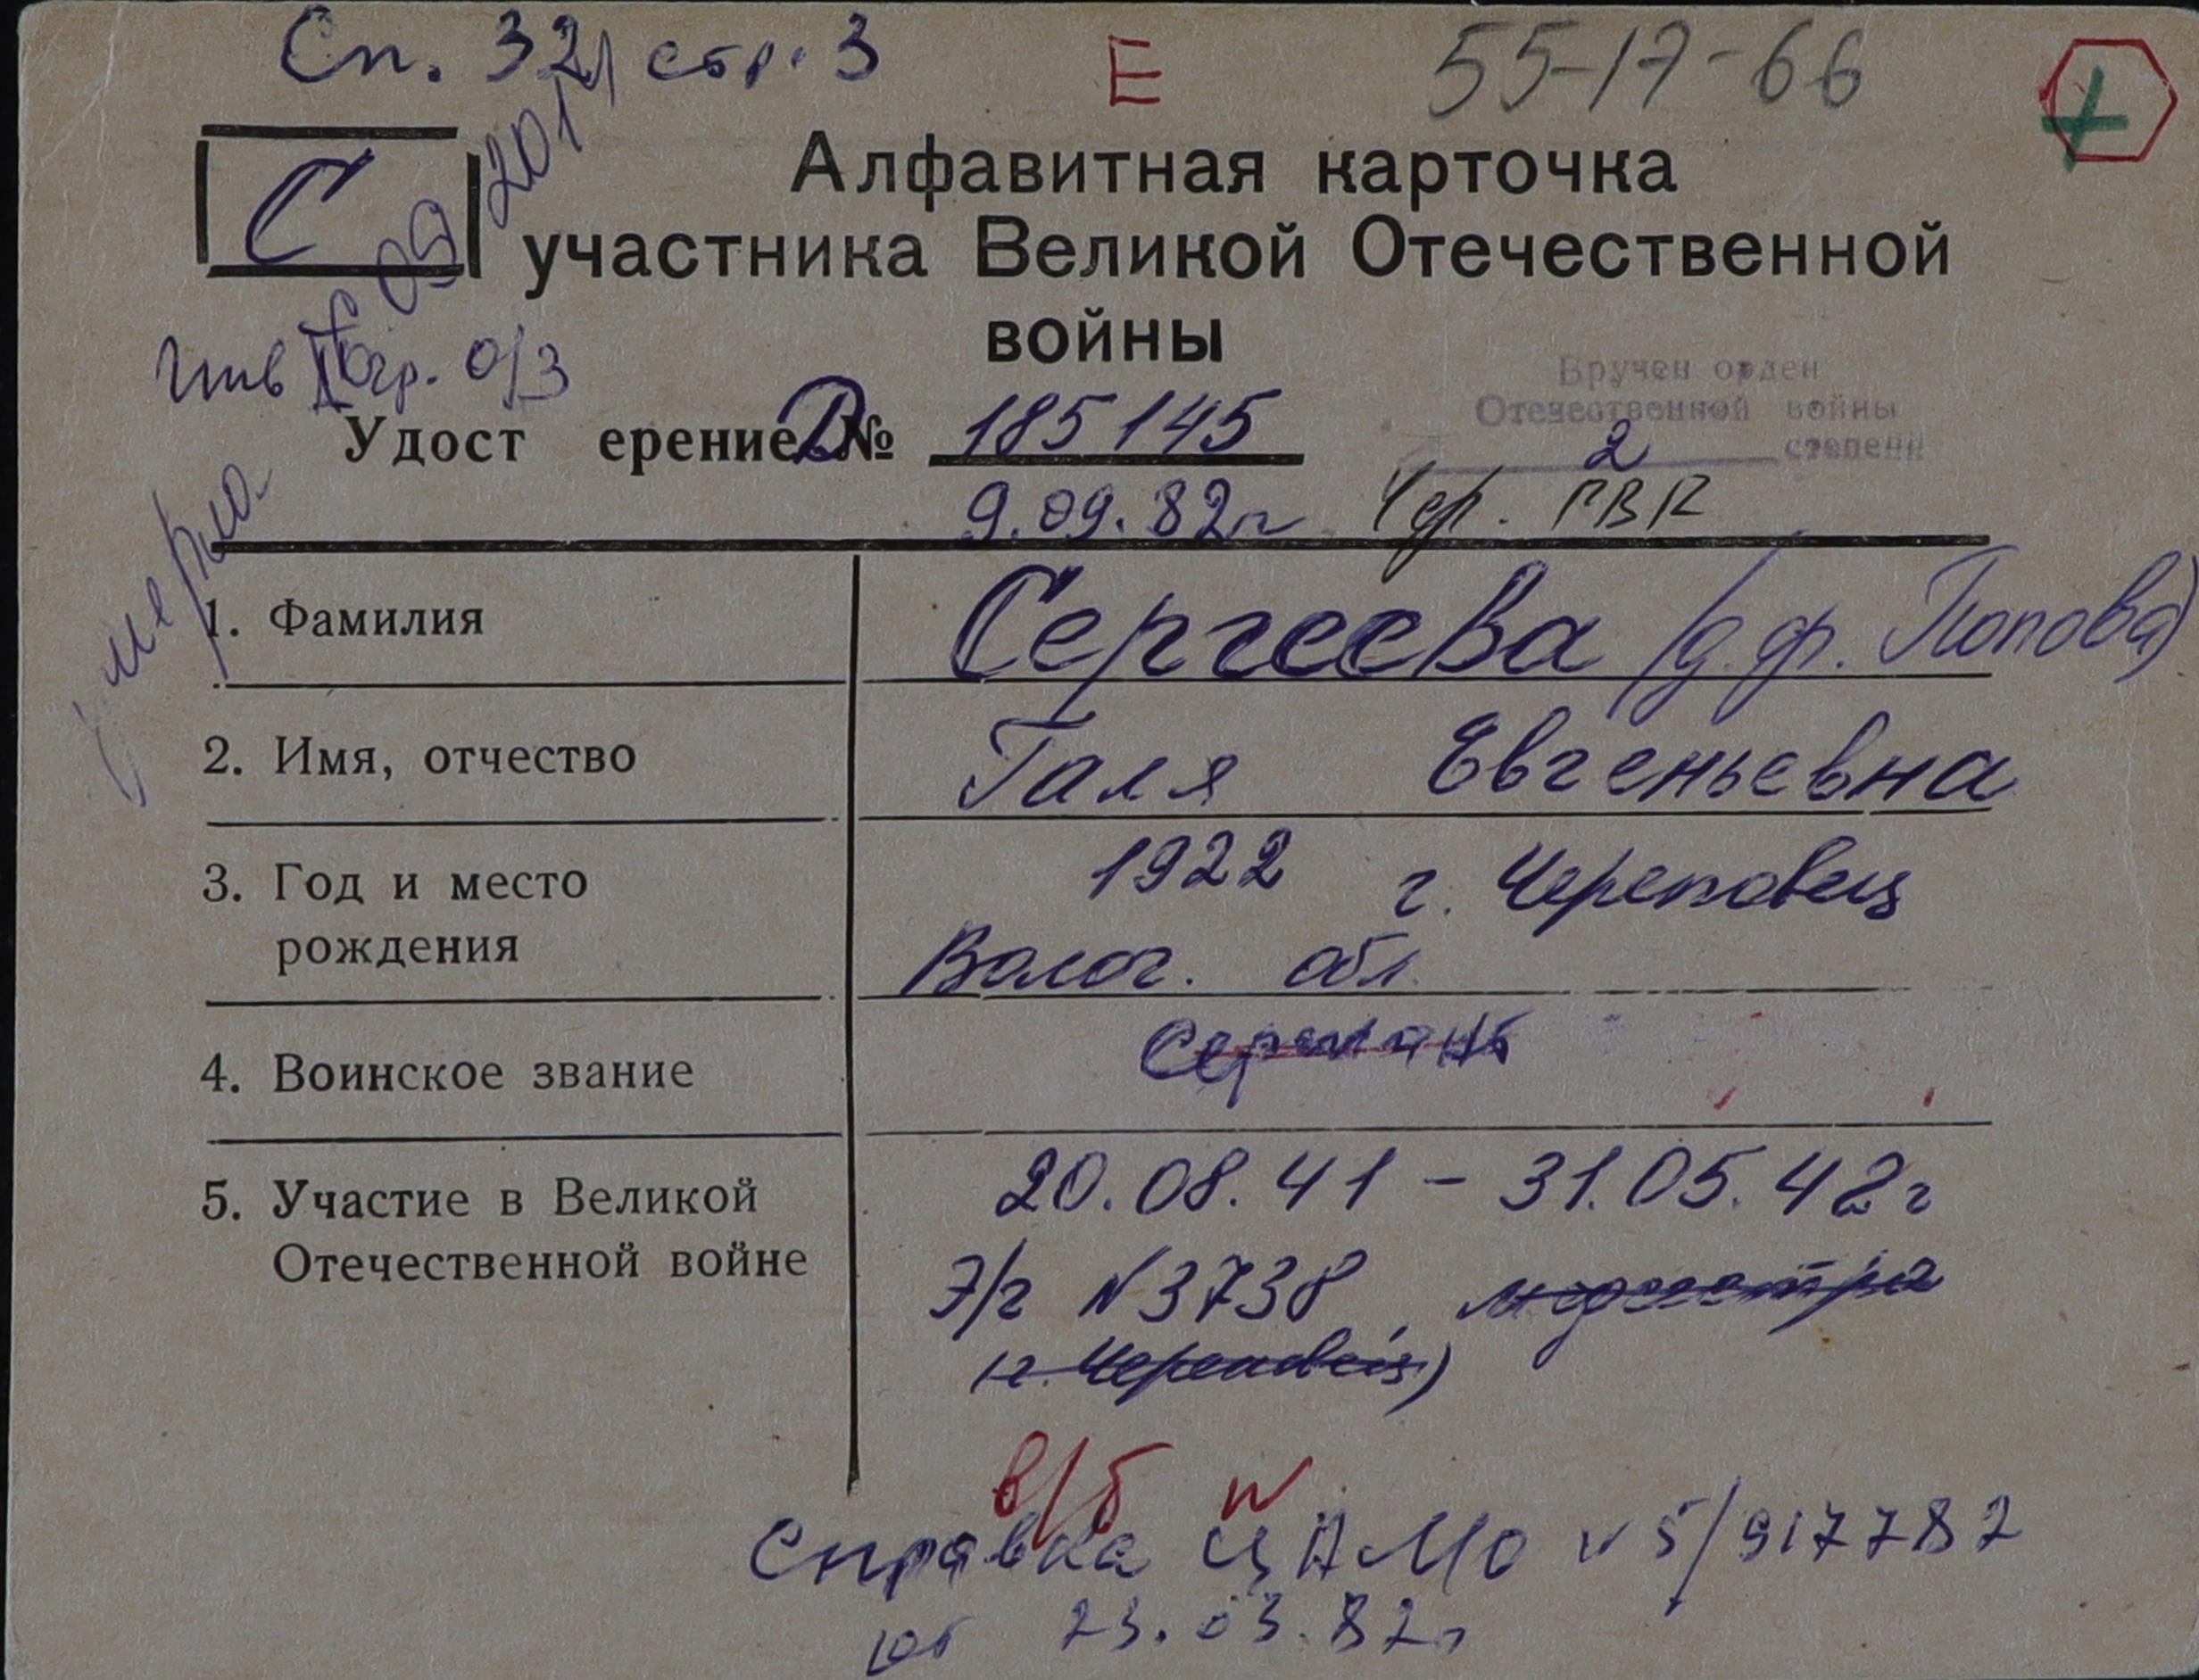 Сп. 32, стр. 3
Е
55-17-66
С
Алфавитная карточка
участника Великой Отечественной
войны
09 201
Инв II гр. о/з
Удост ерение В № 185145
9.09.82г Чер. ГВК
Вручен орден
Отечественной войны
2 степени
умерла
1. Фамилия Сергеева (д.ф. Попова)
2. Имя, отчество Галя Евгеньевна
3. Год и место 1922 г. Череповец
рождения Волог. обл.
4. Воинское звание Сержант
5. Участие в Великой 20.08.41 - 31.05.42г
Отечественной войне Э/г N3738, медсестра
(г. Череповец)
в/б
Справка ЦАМО N 5/917782
от 23.03.82г